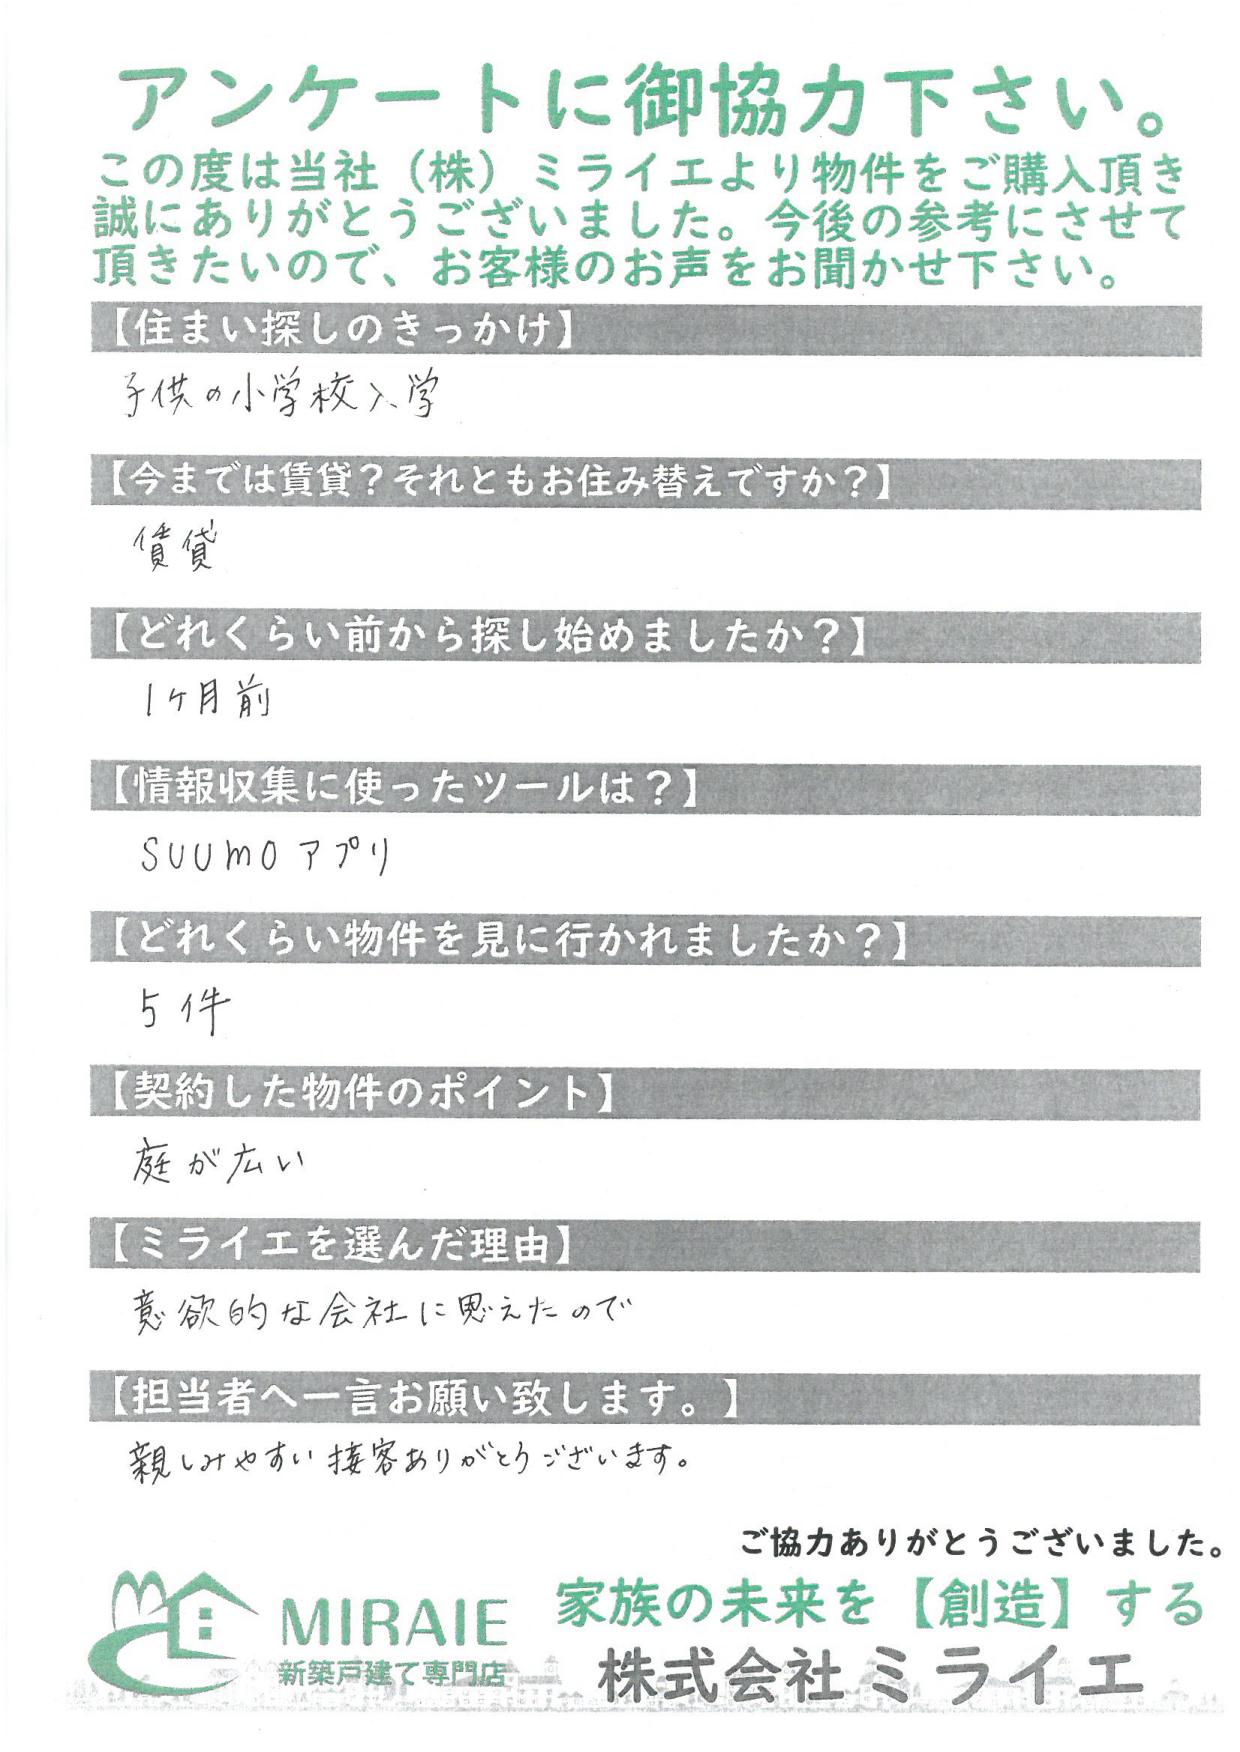 アンケートに御協力下さい。
この度は当社（株）ミライエより物件をご購入頂き
誠にありがとうございました。今後の参考にさせて
頂きたいので、お客様のお声をお聞かせ下さい。
【住まい探しのきっかけ】
子供の小学校入学
【今までは賃貸？それともお住み替えですか？】
賃貸
【どれくらい前から探し始めましたか？】
1ヶ月前
【情報収集に使ったツールは？】
SUUMOアプリ
【どれくらい物件を見に行かれましたか？】
5件
【契約した物件のポイント】
庭が広い
【ミライエを選んだ理由】
意欲的な会社に思えたので
【担当者へ一言お願い致します。】
親しみやすい接客ありがとうございます。
ご協力ありがとうございました。
MIRAIE
新築戸建て専門店
家族の未来を【創造】する
株式会社ミライエ